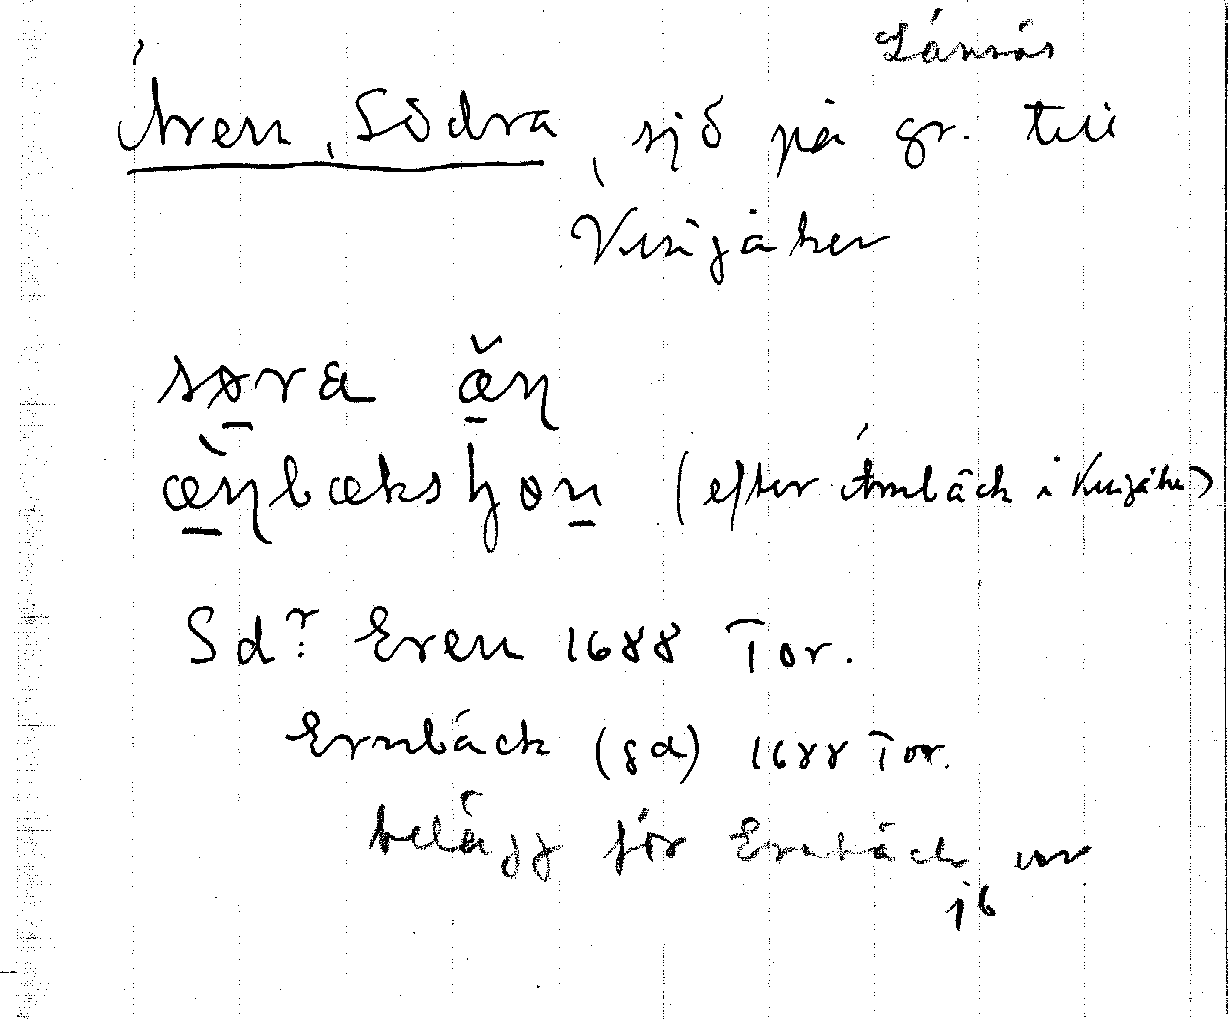 Länsås
Ären, Södra, sjö på gr. till
Vissjåker
søra æ̌n
æ̀nbæks hon (efter Ärnbäck i Kusjåker)
Sdr Eren 1688 Tor.
Ernbäck (gd) 1688 Tor.
belägg för Ernbäck ur
jb